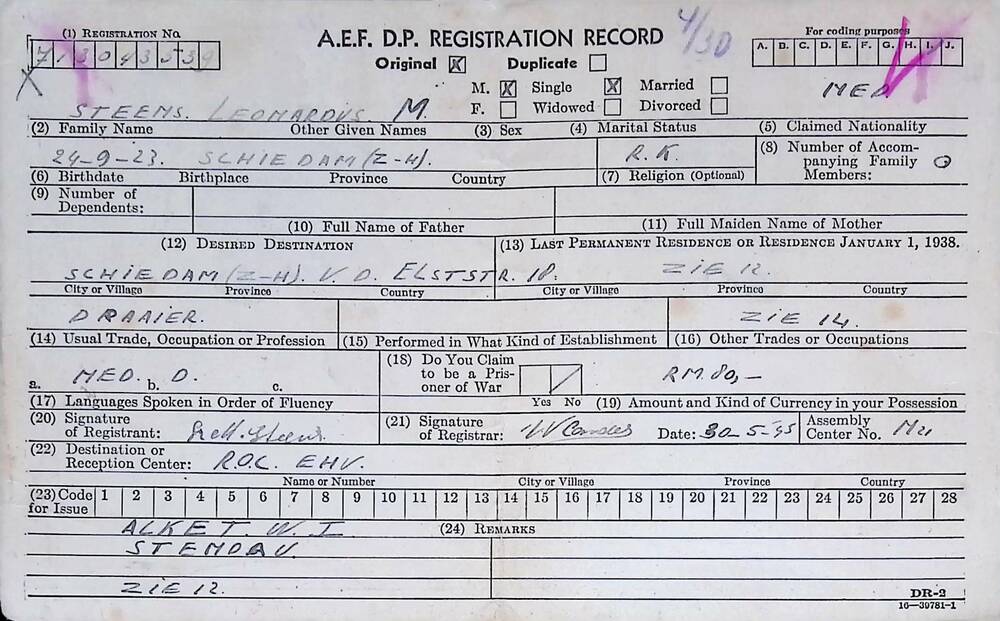 (1) REGISTRATION No.
A.E.F. D.P. REGISTRATION RECORD
4/30
For coding purposes
A. B. C. D. E. F. G. H. I. J.
Original ☒ Duplicate ☐
M. ☒ Single ☒ Married ☐
F. ☐ Widowed ☐ Divorced ☐
STEENS. LEONARDUS. M. MED.
(2) Family Name Other Given Names (3) Sex (4) Marital Status (5) Claimed Nationality
24-9-23. SCHIEDAM (Z-H). R.K.
(8) Number of Accompanying Family Members: 0
(6) Birthdate Birthplace Province Country (7) Religion (Optional)
(9) Number of Dependents:
(10) Full Name of Father (11) Full Maiden Name of Mother
(12) DESIRED DESTINATION (13) LAST PERMANENT RESIDENCE OR RESIDENCE JANUARY 1, 1938.
SCHIEDAM (Z-H). V.D. ELSTSTR. 18. ZIE 12.
City or Village Province Country City or Village Province Country
DRAAIER. ZIE 14.
(14) Usual Trade, Occupation or Profession (15) Performed in What Kind of Establishment (16) Other Trades or Occupations
a. MED. b. D. c.
(18) Do You Claim to be a Prisoner of War
RM.80,—
Yes No
(17) Languages Spoken in Order of Fluency (19) Amount and Kind of Currency in your Possession
(20) Signature of Registrant: (21) Signature of Registrar: Date: 30-5-45 Assembly Center No.
(22) Destination or Reception Center: R.O.C. EHV.
Name or Number City or Village Province Country
(23) Code for Issue 1 2 3 4 5 6 7 8 9 10 11 12 13 14 15 16 17 18 19 20 21 22 23 24 25 26 27 28
ALKET W. I (24) REMARKS
ZIE 12.
DR-2
16—39781-1